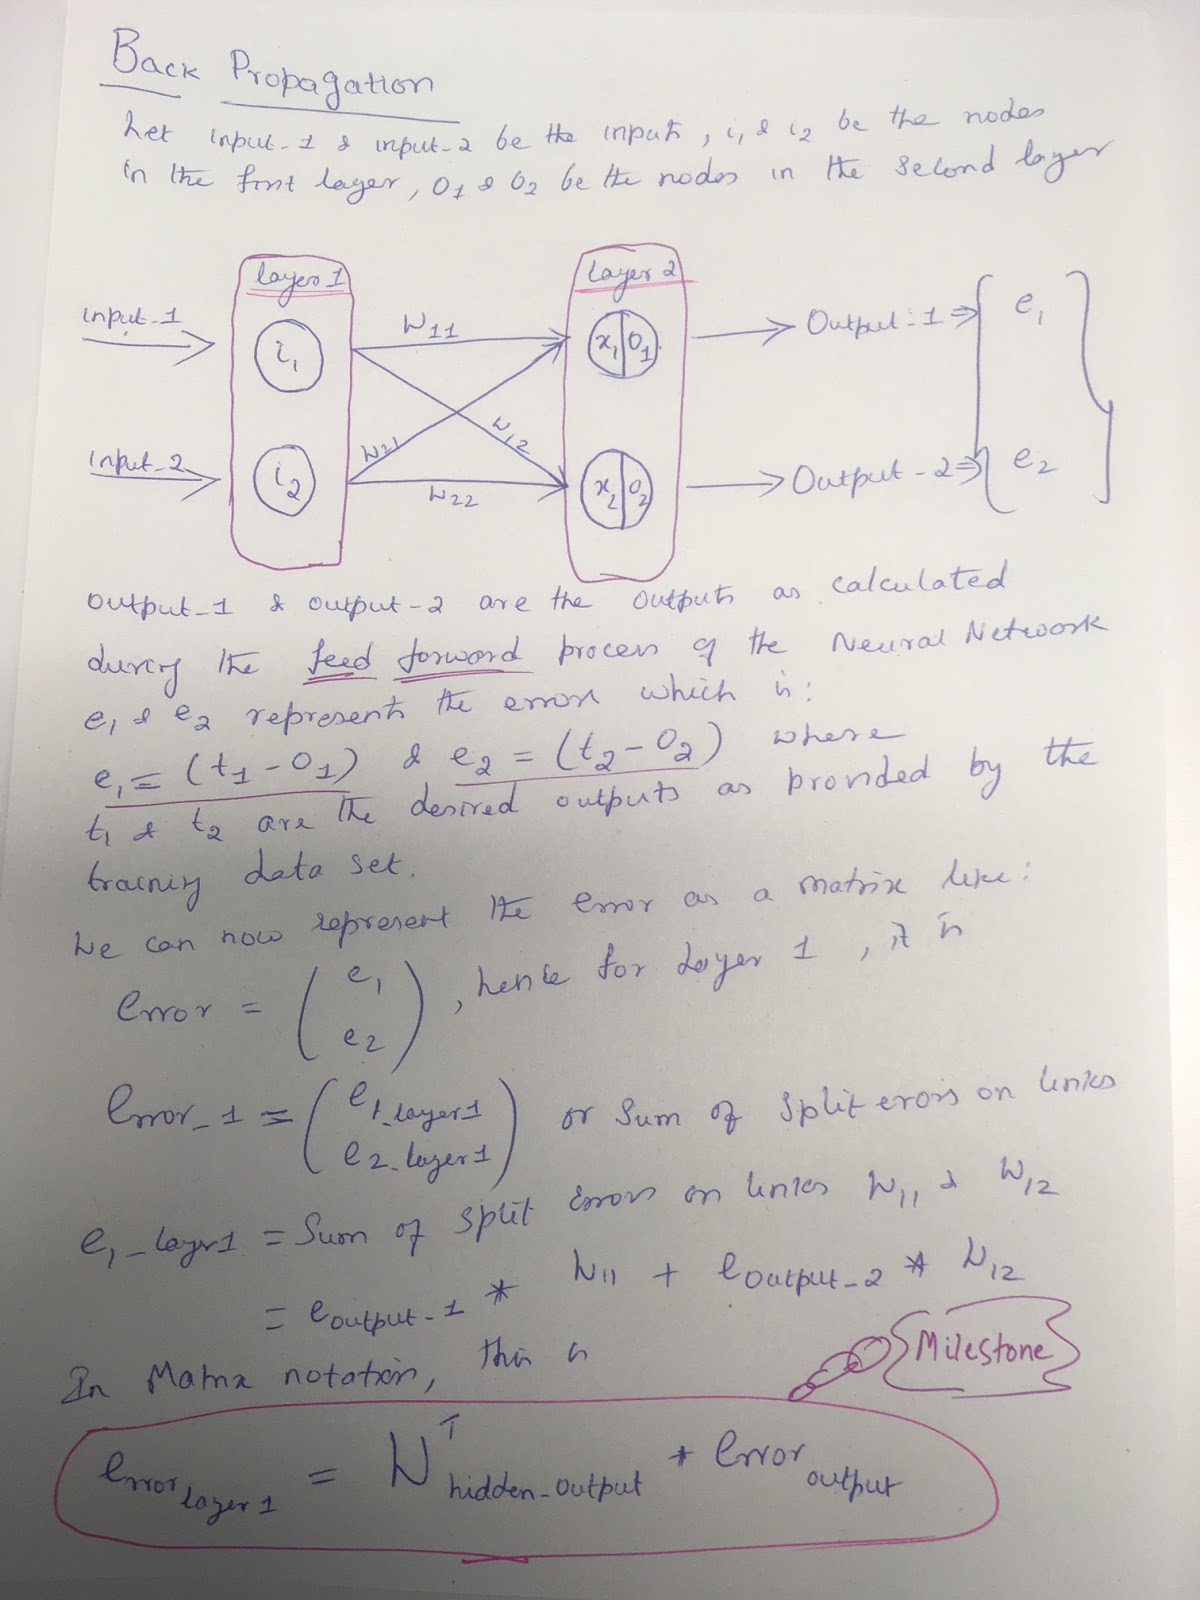 Back Propagation
Let input_1 & input_2 be the inputs, i1 & i2 be the nodes
in the first layer, O1 & O2 be the nodes in the second layer
layer 1
layer 2
input_1
i1
W11
x1 | O1
Output_1 ⇒ e1
W21
W12
input_2
i2
W22
x2 | O2
Output_2 ⇒ e2
output_1 & output_2 are the outputs as calculated
during the feed forward process of the Neural Network
e1 & e2 represents the errors which is:
e1 = (t1 - O1) & e2 = (t2 - O2) where
t1 & t2 are the desired outputs as provided by the
training data set.
We can now represent the error as a matrix like:
Error = ( e1 e2 ), hence for Layer 1, it is
Error_1 = ( e1_layer1 e2_layer1 ) or Sum of split errors on links
e1_layer1 = Sum of split errors on links W11 & W12
= eoutput_1 * W11 + eoutput_2 * W12
In Matrix notation, this is
Milestone
Error layer1 = W^T hidden_output * Error output